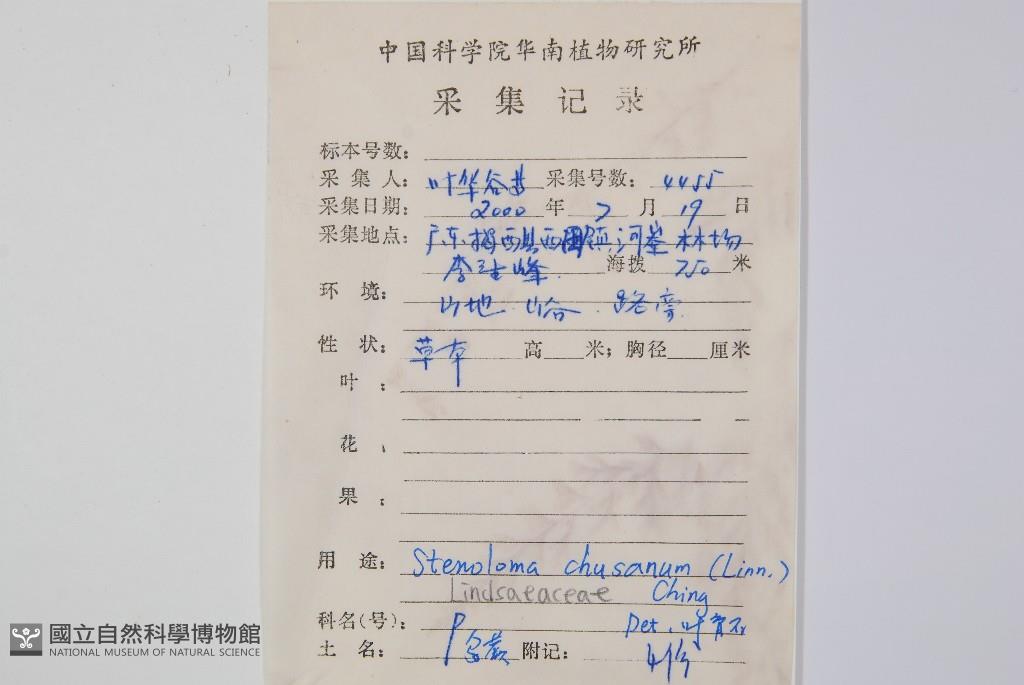 中国科学院华南植物研究所
采集记录
标本号数：
采集人：叶华谷 采集号数：4455
采集日期：2000年7月19日
采集地点：广东揭西县西田镇河 林场
李 峰 海拨 750 米
环境：
山地 山谷 路旁
性状：草本 高 米；胸径 厘米
叶：
花、
果：
用途：Stenoloma chusanum (Linn.)
Lindsaeaceae Ching
科名(号)： P Det. 叶育石
土名： 乌蕨 附记： 4份
國立自然科學博物館
NATIONAL MUSEUM OF NATURAL SCIENCE